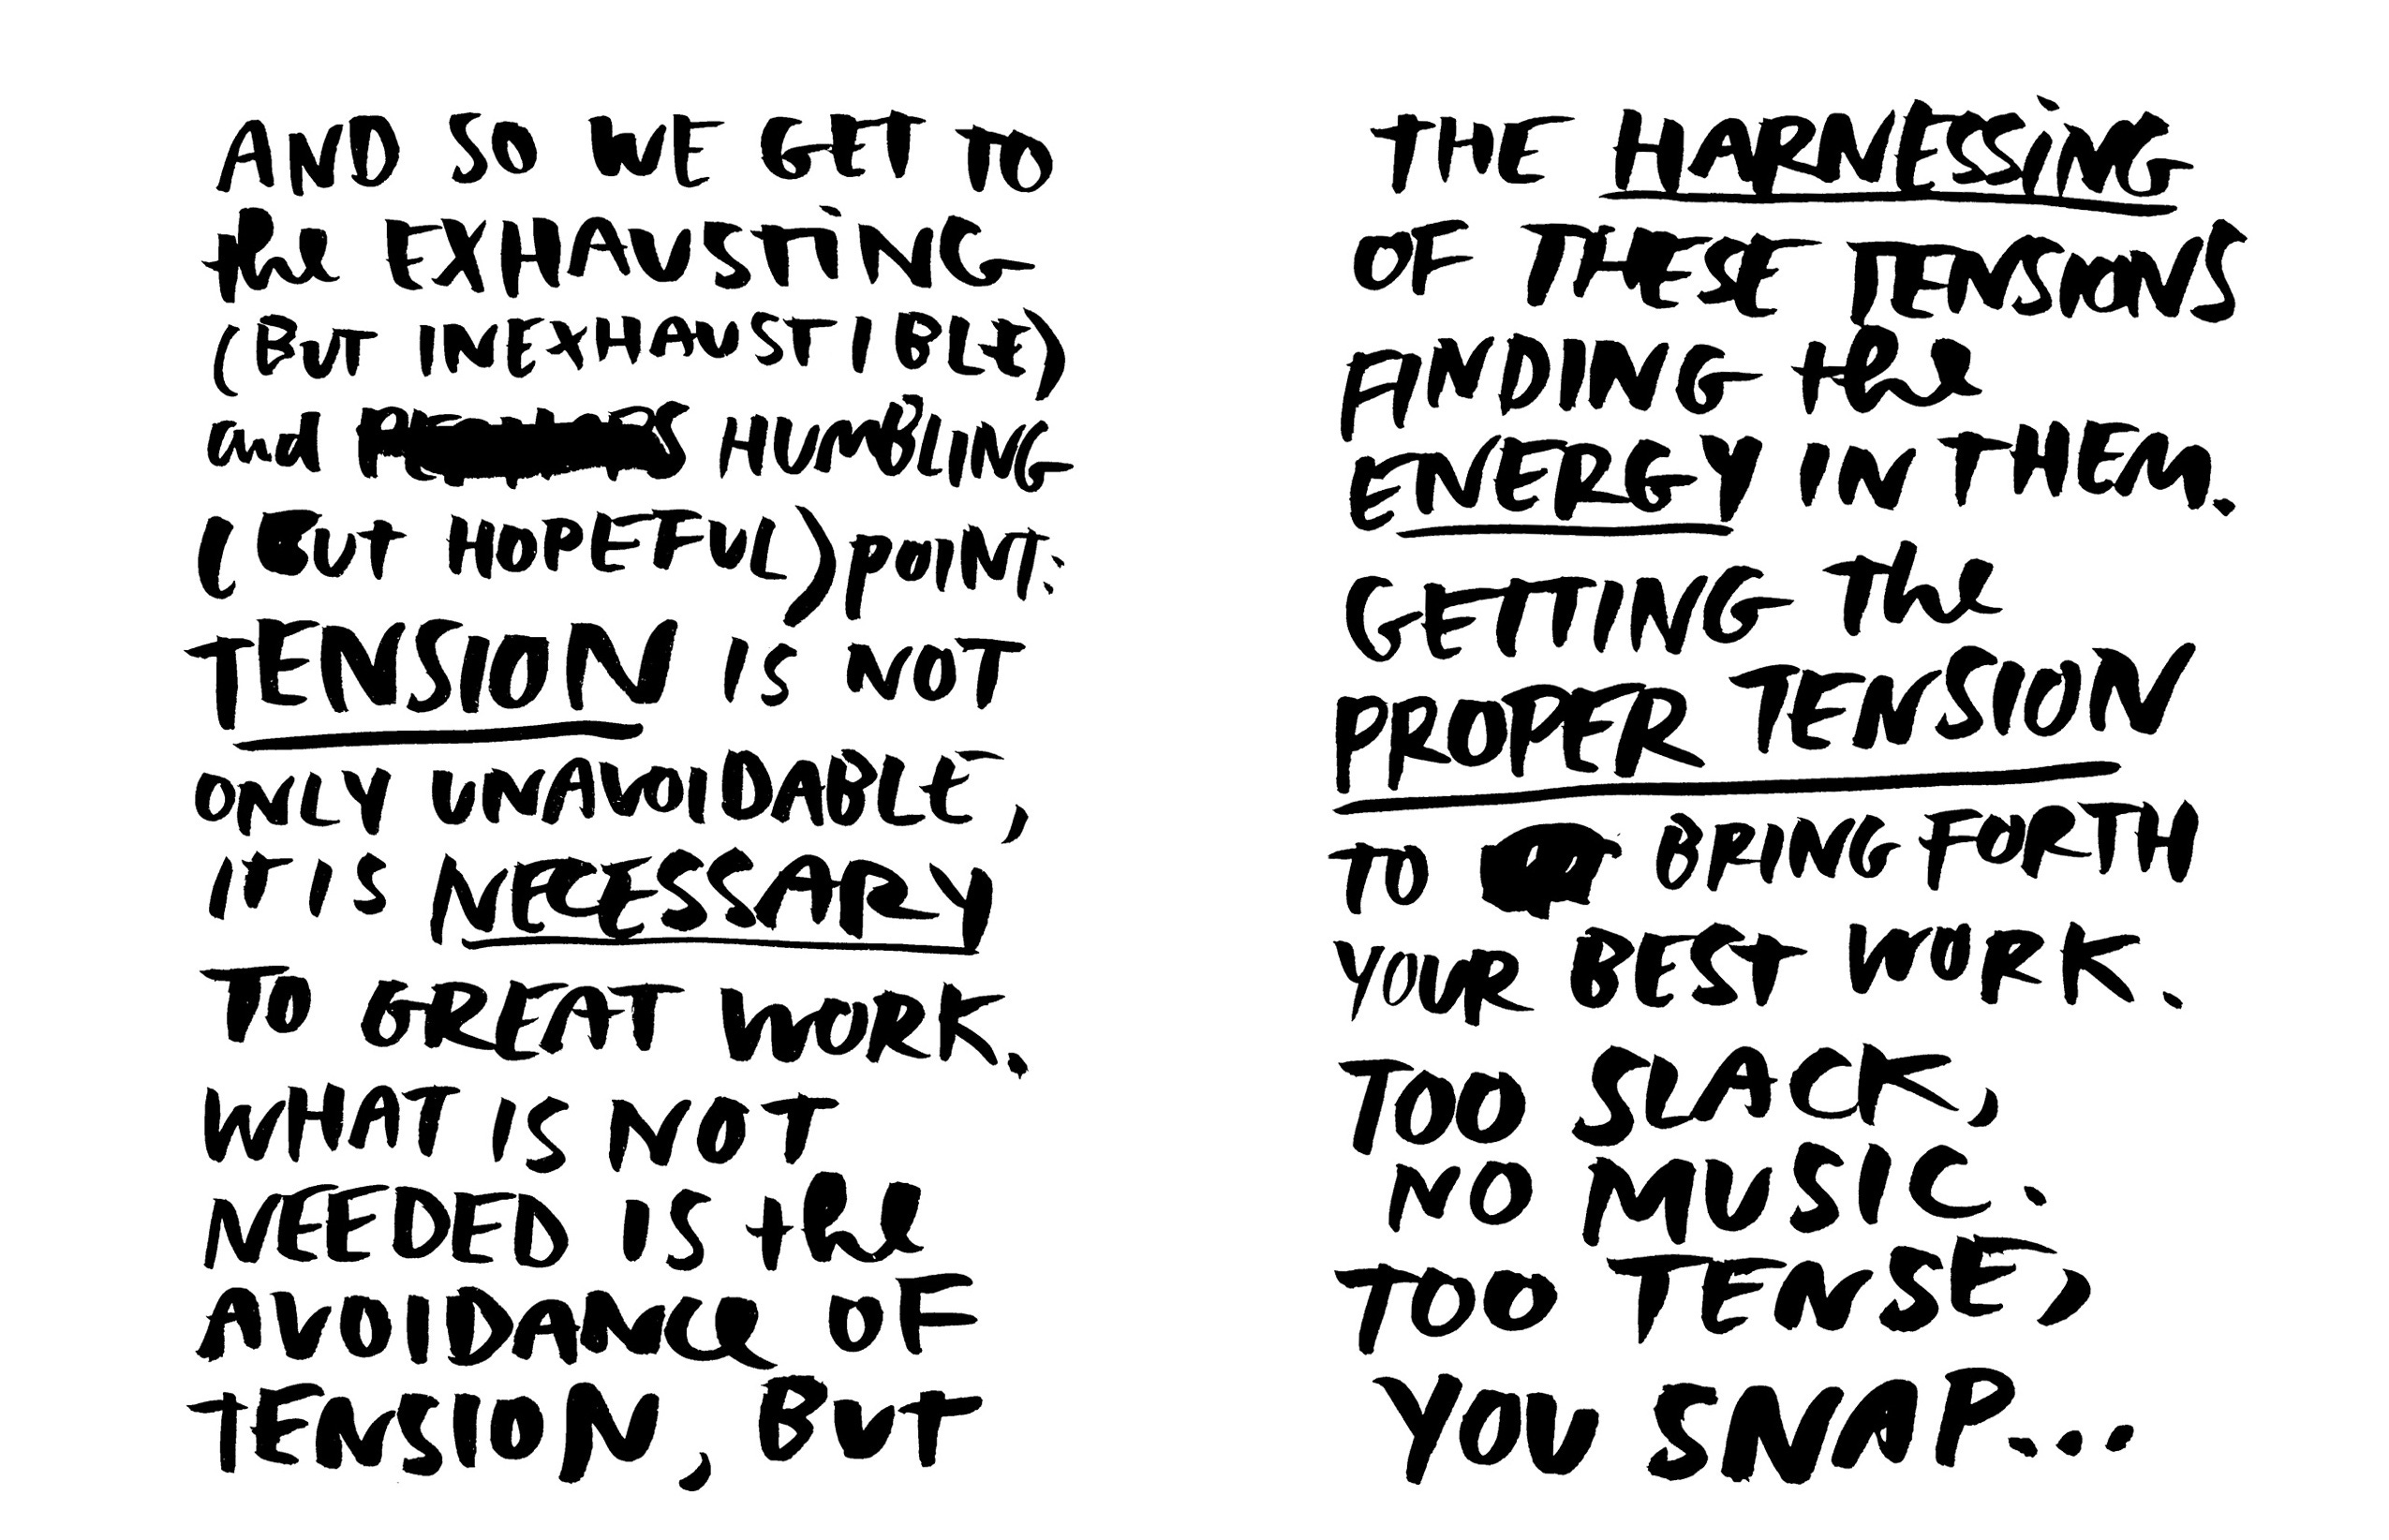 AND SO WE GET TO
the EXHAUSTiNG
(BUT INEXHAUSTIBLE)
and HUMBLING
(BUT HOPEFUL) POINT:
TENSION IS NOT
ONLY UNAVOIDABLE,
IT IS NECESSARY
TO GREAT WORK.
WHAT IS NOT
NEEDED IS the
AVOIDANCE OF
TENSION, BUT
THE HARNESSiNG
OF THESE TENSIONS
FINDING the
ENERGY IN THEM.
GETTING the
PROPER TENSION
TO BRING FORTH
YOUR BEST WORK.
TOO SLACK,
NO MUSIC.
TOO TENSE,
YOU SNAP...